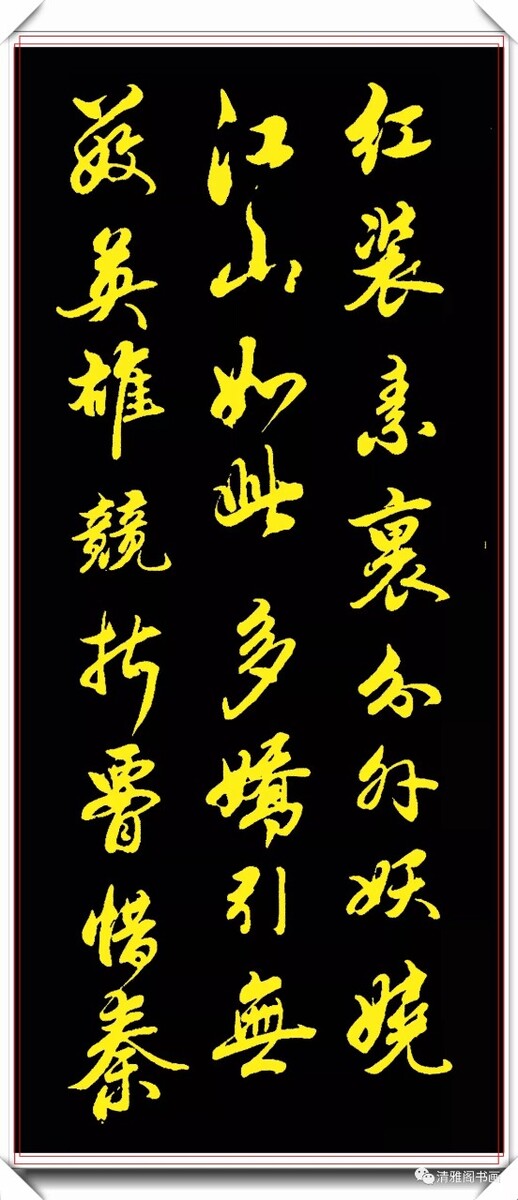 红装素裹分外妖娆
江山如此多嬌引無
數英雄競折腰惜秦
清雅阁书画